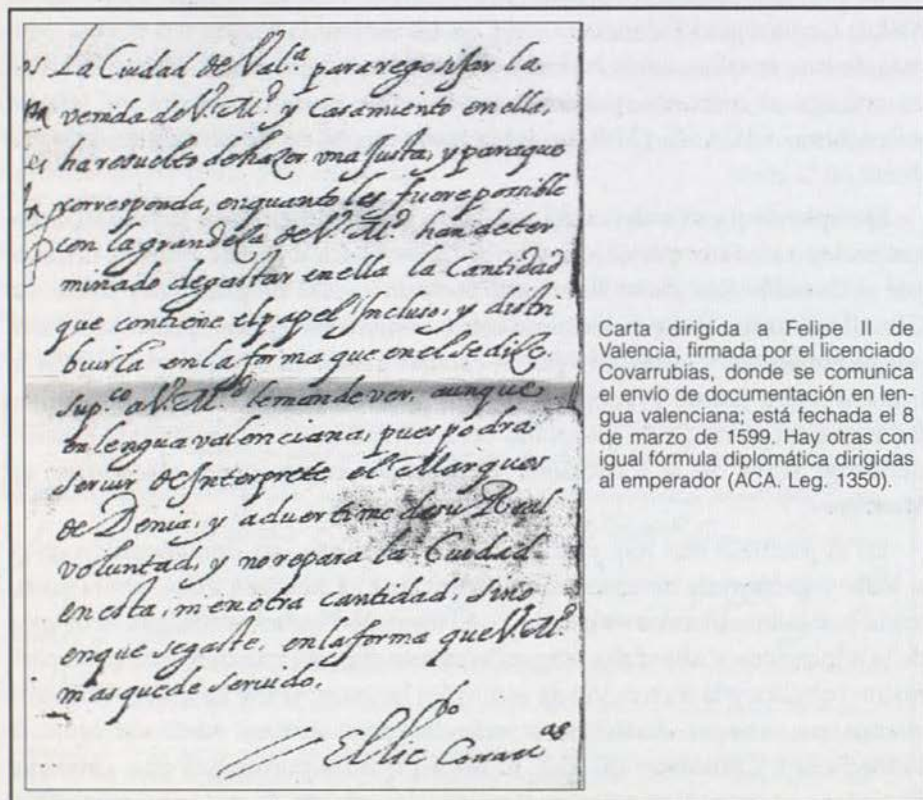 La Ciudad de Val.ª para regosijar la
venida de V. M.ᵈ y Casamiento en ella,
ha resuelto de hazer vna justa, y paraque
corresponda, en quanto les fuere possible
con la grandeza de V. M.ᵈ han deter
minado de gastar en ella la Cantidad
que contiene el papel Incluso, y distri
buirla en la forma que en el se dize.
Sup.ᶜᵒ a V. M.ᵈ le mande ver, aunque
en lengua valenciana, pues podra
seruir de Interprete el Marques
de Denia, y aduertirme de su Real
voluntad, y no repara la Ciudad
en esta, ni en otra cantidad, sino
en que se gaste, en la forma que V. M.ᵈ
mas quede seruido.
El Lic Couarr ᵃˢ
Carta dirigida a Felipe II de
Valencia, firmada por el licenciado
Covarrubias, donde se comunica
el envío de documentación en len-
gua valenciana; está fechada el 8
de marzo de 1599. Hay otras con
igual fórmula diplomática dirigidas
al emperador (ACA. Leg. 1350).